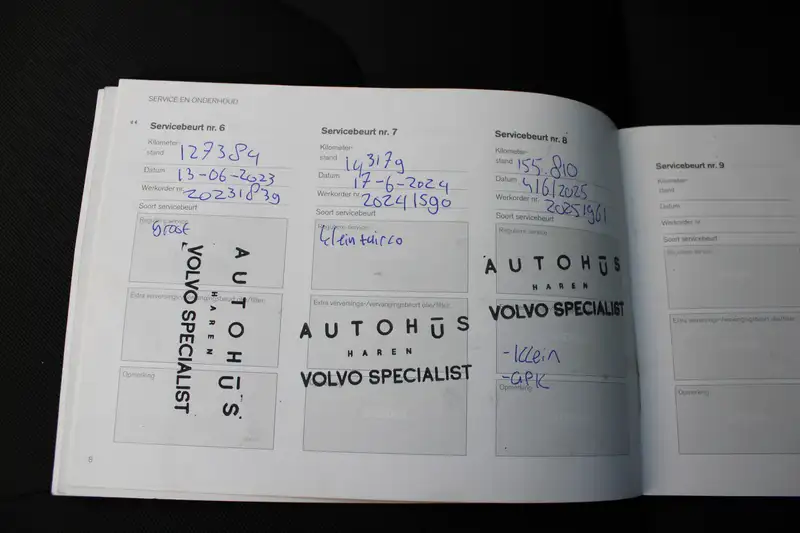 SERVICE EN ONDERHOUD
Servicebeurt nr. 6
Kilometer-
stand 127384
Datum 13-06-2023
Werkorder nr. 20231839
Soort servicebeurt
Reguliere service
groot
AUTOHŪS
HAREN
VOLVO SPECIALIST
Extra verversings-/vervangingsbeurt olie/filter.
Opmerking
8
Servicebeurt nr. 7
Kilometer-
stand
Datum 17-6-2024
Werkorder nr.
Soort servicebeurt
Reguliere service
klein + airco
Extra verversings-/vervangingsbeurt olie/filter.
AUTOHŪS
HAREN
VOLVO SPECIALIST
Servicebeurt nr. 8
Kilometer-
stand 155.810
Datum 4/6/2025
Werkorder nr. 20251961
Soort servicebeurt
Reguliere service
AUTOHŪS
HAREN
VOLVO SPECIALIST
-Klein
-APK
Opmerking
Servicebeurt nr. 9
Kilometer-
stand
Datum
Werkorder nr.
Soort servicebeurt
Reguliere service
Extra verversings-/vervangingsbeurt
Opmerking